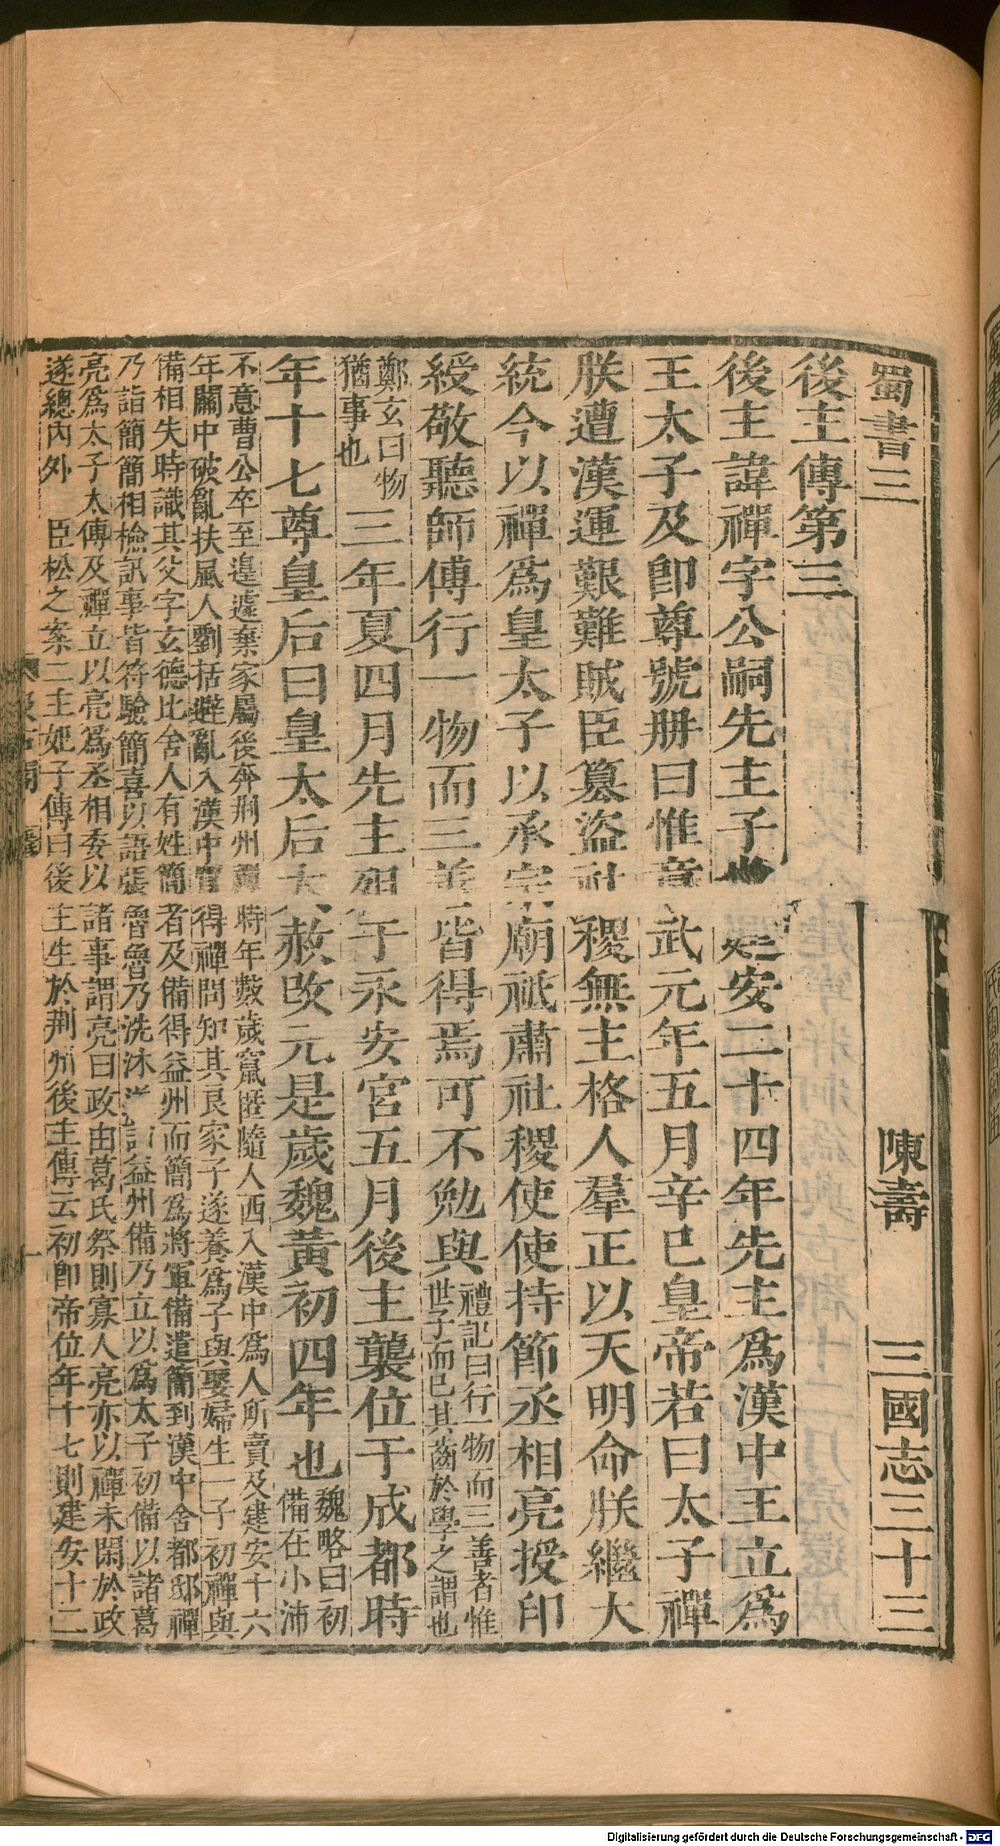 蜀書三 陳壽 三國志三十三
後主傳第三
後主諱禪字公嗣先主子也建安二十四年先主爲漢中王立爲
王太子及卽尊號册曰惟章武元年五月辛巳皇帝若曰太子禪
朕遭漢運艱難賊臣篡盜社稷無主格人羣正以天明命朕繼大
統今以禪爲皇太子以承宗廟祗肅社稷使使持節丞相亮授印
綬敬聽師傅行一物而三善皆得焉可不勉與
禮記曰行一物而三善者惟
世子而已其齒於學之謂也
鄭玄曰物
猶事也
三年夏四月先主殂于永安宮五月後主襲位于成都時
年十七尊皇后曰皇太后大赦改元是歲魏黃初四年也
魏略曰初
備在小沛
不意曹公卒至遑遽棄家屬後奔荆州禪時年數歲竄匿隨人西入漢中爲人所賣及建安十六
年關中破亂扶風人劉括避亂入漢中買得禪問知其良家子遂養爲子與娶婦生一子初禪與
備相失時識其父字玄德比舍人有姓簡者及備得益州而簡爲將軍備遣簡到漢中舍都邸禪
乃詣簡簡相檢訊事皆符驗簡喜以語張魯魯乃洗沐送詣益州備乃立以爲太子初備以諸葛
亮爲太子太傅及禪立以亮爲丞相委以諸事謂亮曰政由葛氏祭則寡人亮亦以禪未閑於政
遂總內外 臣松之案二主妃子傳曰後主生於荆州後主傳云初卽帝位年十七則建安十二
Digitalisierung gefördert durch die Deutsche Forschungsgemeinschaft - DFG